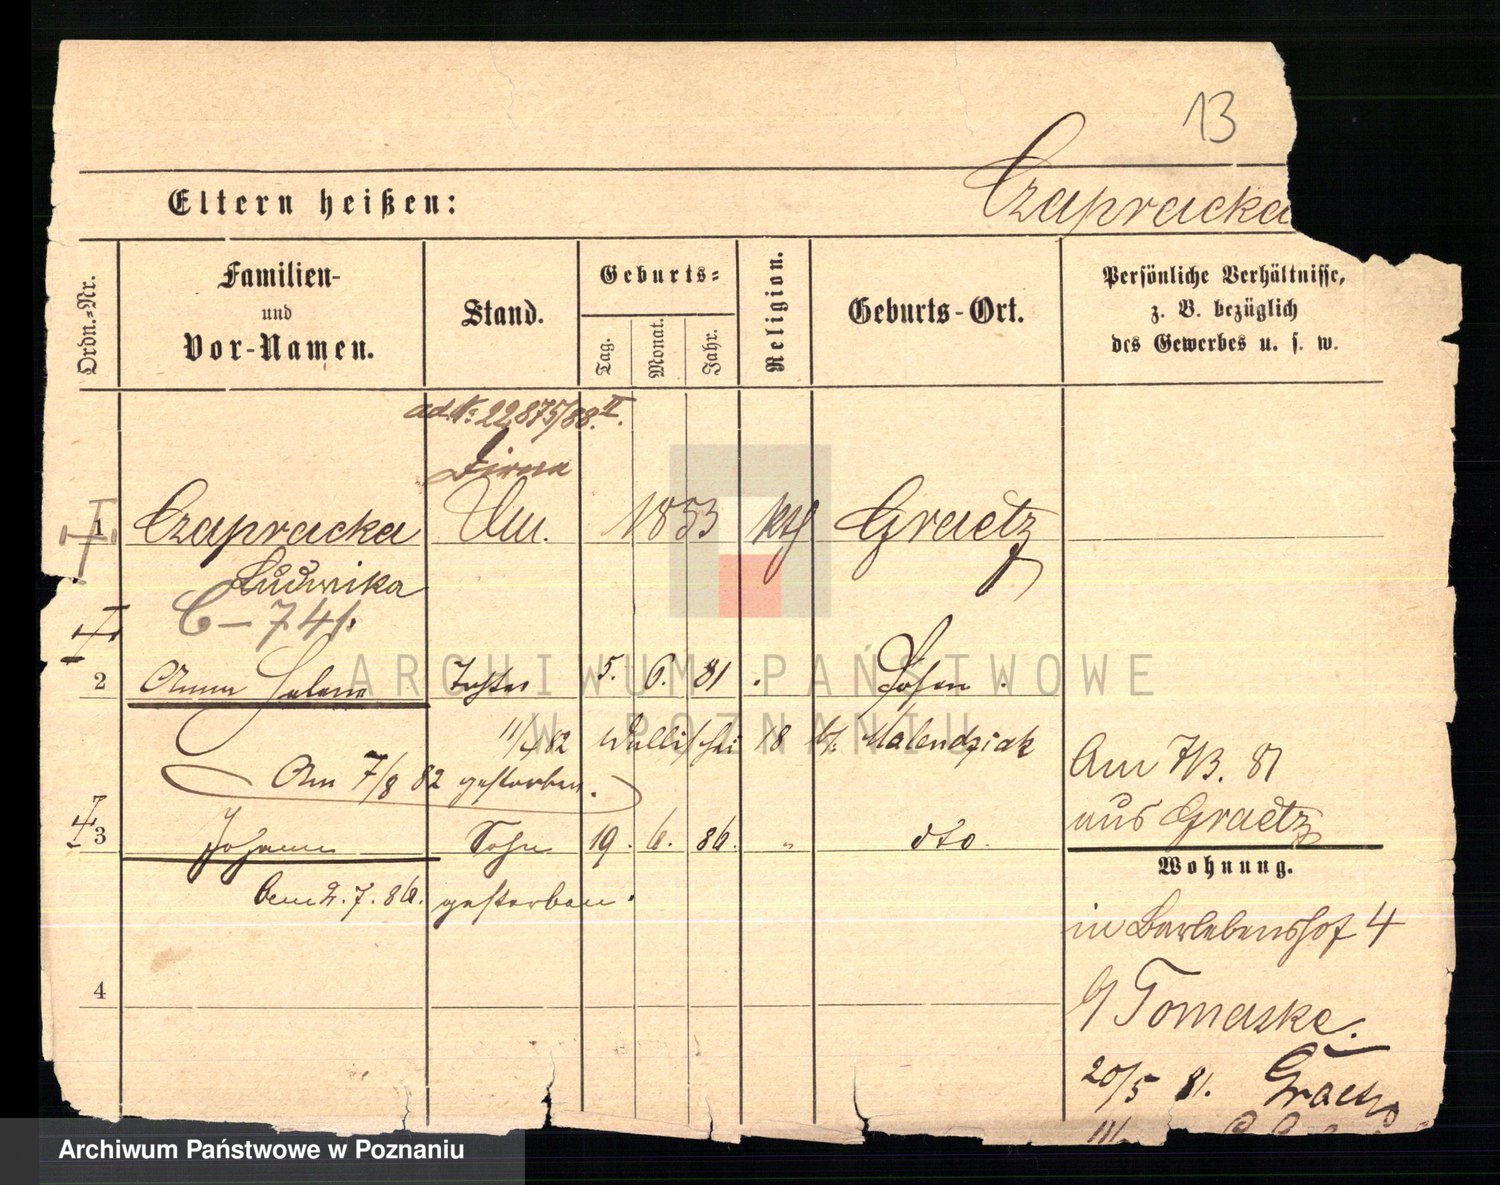 13
Czapracka
Eltern heißen:
Ordn.-Nr.
Familien-
und
Vor-Namen.
Stand.
Geburts-
Tag.
Monat.
Jahr.
Religion.
Geburts-Ort.
Persönliche Verhältnisse,
z. B. bezüglich
des Gewerbes u. s. w.
ad. No 22875/88. II.
Dirne
1 Czapracka Un. 1853 kth Graetz
Ludwika
C-741.
2 Anna Helena Tochter 5. 6. 81 Posen.
11/4 82 Wallischei 18 b/. Malendziak
Am 7/8 82 gestorben.
3 Johann Sohn 19. 6. 86. " dto.
Am 2.7.86. gestorben.
4
Am 7/3. 81
aus Graetz
Wohnung.
in Barlebenshof 4
b/ Tomaske.
20/5 81. Graetz
11/
ARCHIWUM PAŃSTWOWE
W POZNANIU
Archiwum Państwowe w Poznaniu